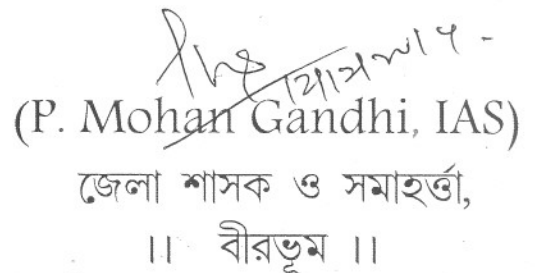 (P. Mohan Gandhi, IAS)
জেলা শাসক ও সমাহর্ত্তা,
।। বীরভূম ।।